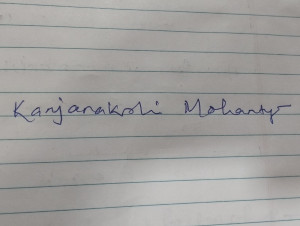 Kanjanakoli Mohanty